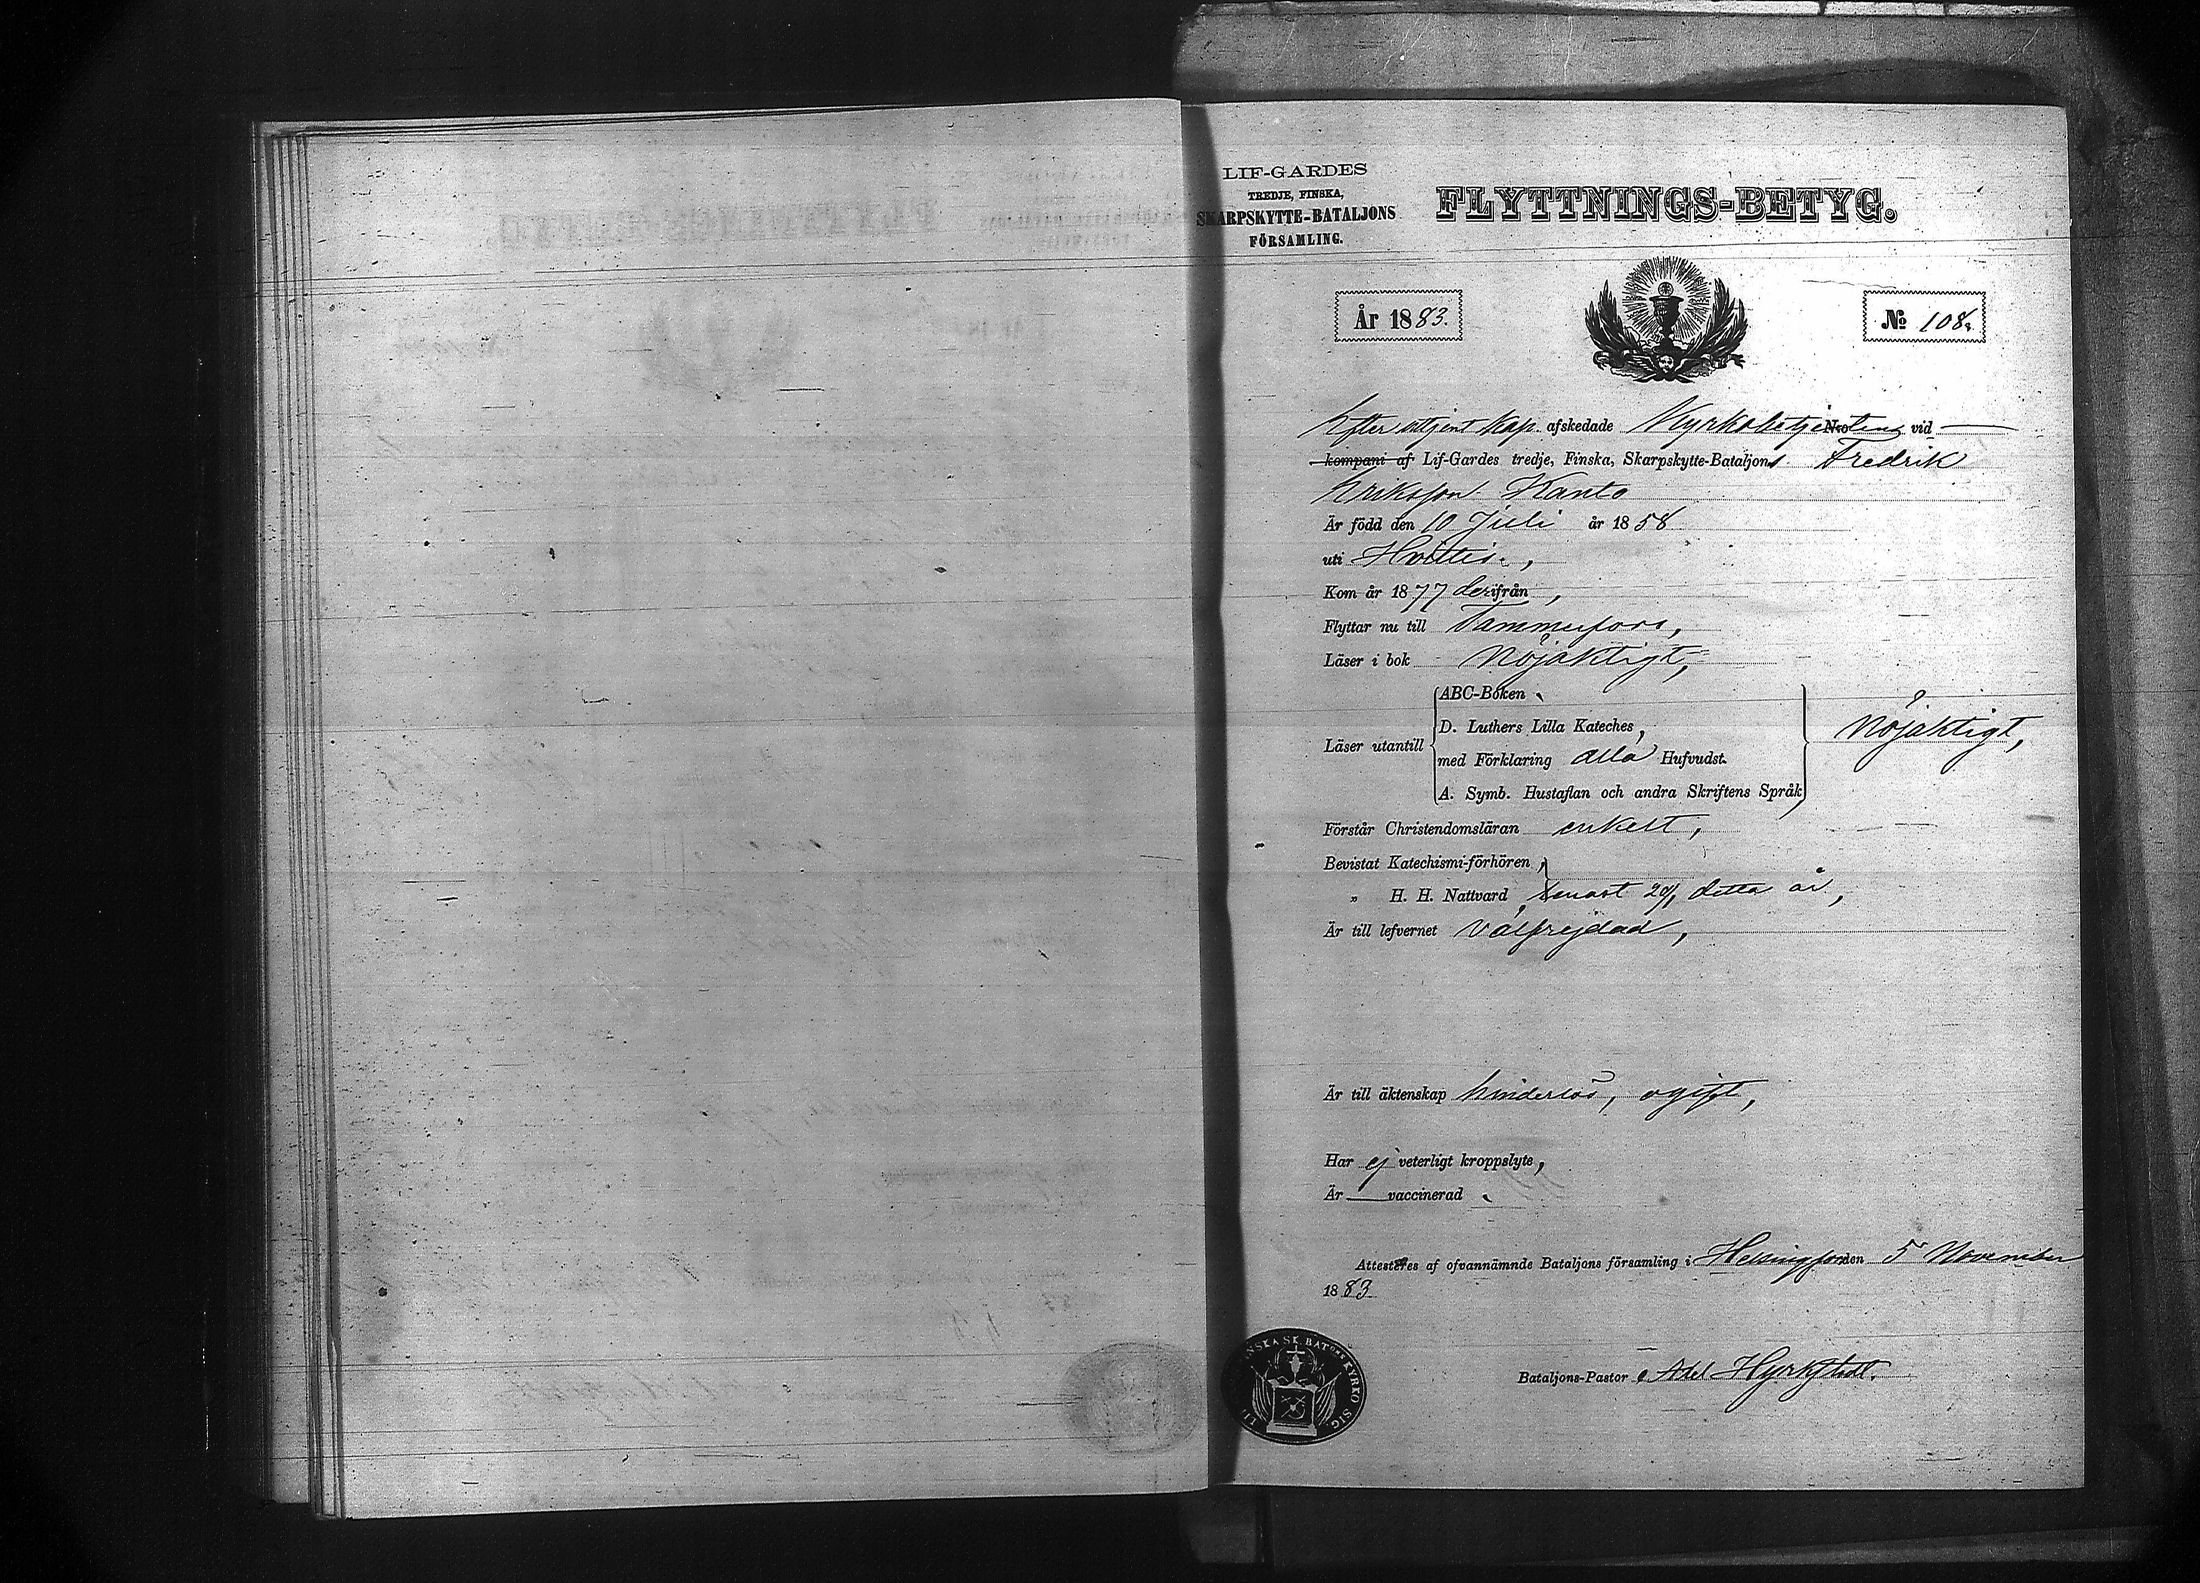 LIF-GARDES
TREDJE, FINSKA,
SKARPSKYTTE-BATALJONS
FÖRSAMLING.
FLYTTNINGS-BETYG.
År 1883.
№ 108.
Efter uttjent kap. afskedade Kyrkobetjenten vid
kompani af Lif-Gardes tredje, Finska, Skarpskytte-Bataljons Fredrik
Eriksson Kanto
Är född den 10 Juli år 1858
uti Hvittis,
Kom år 1877 derifrån,
Flyttar nu till Tammerfors,
Läser i bok Nöjaktigt,
Läser utantill
ABC-Boken,
D. Luthers Lilla Kateches,
med Förklaring alla Hufvudst.
A. Symb. Hustaflan och andra Skriftens Språk
Nöjaktigt,
Förstår Christendomsläran enkelt,
Bevistat Katechismi-förhören,
„ H. H. Nattvard, senast detta år,
Är till lefvernet Välfrejdad,
Är till äktenskap hinderlös, ogift,
Har ej veterligt kroppslyte,
Är vaccinerad.
Attesteres af ofvannämnde Bataljons församling i Helsingfors den 5 November
1883
Bataljons-Pastor, Axel Hyrkstedt.
NSKA SK. BATONS KYRKO SIG